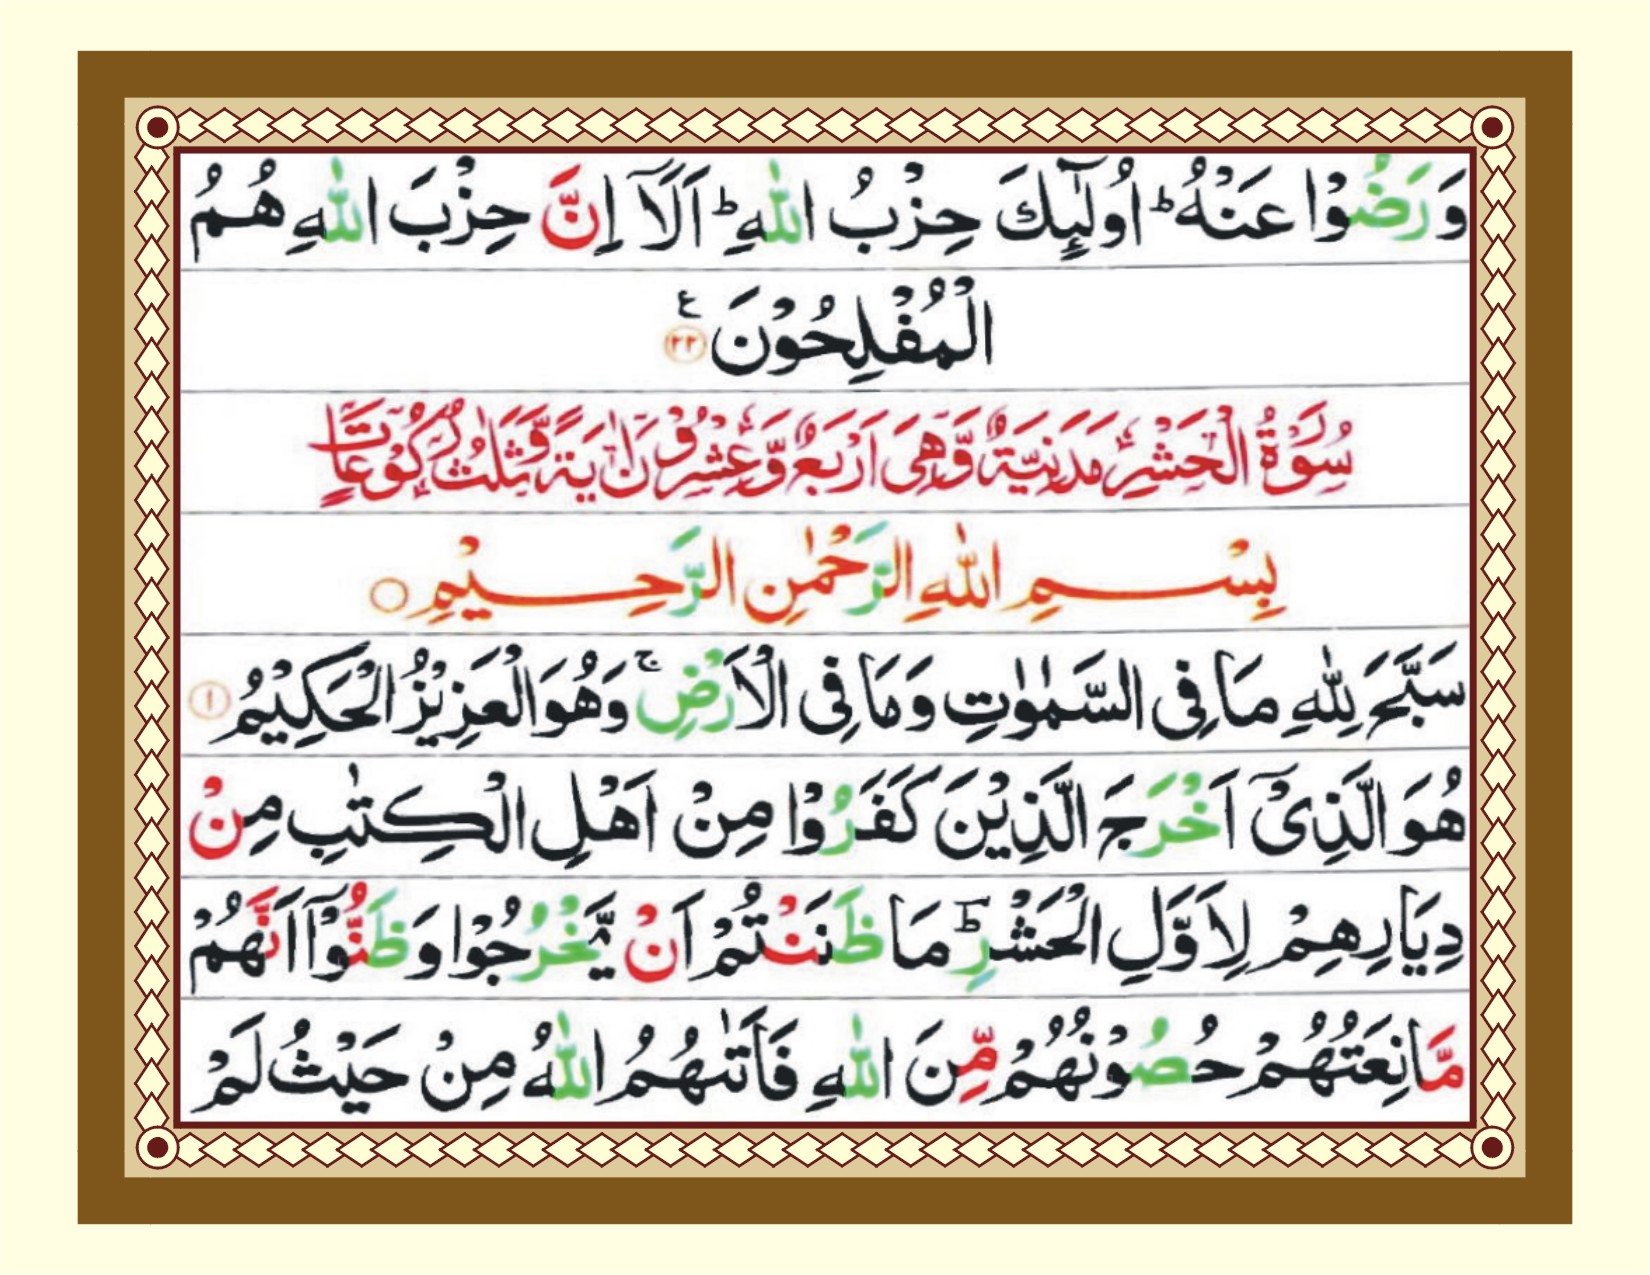 وَرَضُوْا عَنْهُ ؕ اُولٰٓىِٕكَ حِزْبُ اللّٰهِ ؕ اَلَاۤ اِنَّ حِزْبَ اللّٰهِ هُمُ
الْمُفْلِحُوْنَ ۧ ۲۲
سُوْرَةُ الْحَشْرِ مَدَنِيَّةٌ وَّهِيَ اَرْبَعٌ وَّعِشْرُوْنَ اٰيَةً وَّثَلٰثُ رُكُوْعَاتٍ
بِسْمِ اللّٰهِ الرَّحْمٰنِ الرَّحِيْمِ ○
سَبَّحَ لِلّٰهِ مَا فِى السَّمٰوٰتِ وَمَا فِى الْاَرْضِ ۚ وَهُوَ الْعَزِيْزُ الْحَكِيْمُ ۱
هُوَ الَّذِىْۤ اَخْرَجَ الَّذِيْنَ كَفَرُوْا مِنْ اَهْلِ الْكِتٰبِ مِنْ
دِيَارِهِمْ لِاَوَّلِ الْحَشْرِ ؕ مَا ظَنَنْتُمْ اَنْ يَّخْرُجُوْا وَظَنُّوْۤا اَنَّهُمْ
مَّانِعَتُهُمْ حُصُوْنُهُمْ مِّنَ اللّٰهِ فَاَتٰىهُمُ اللّٰهُ مِنْ حَيْثُ لَمْ